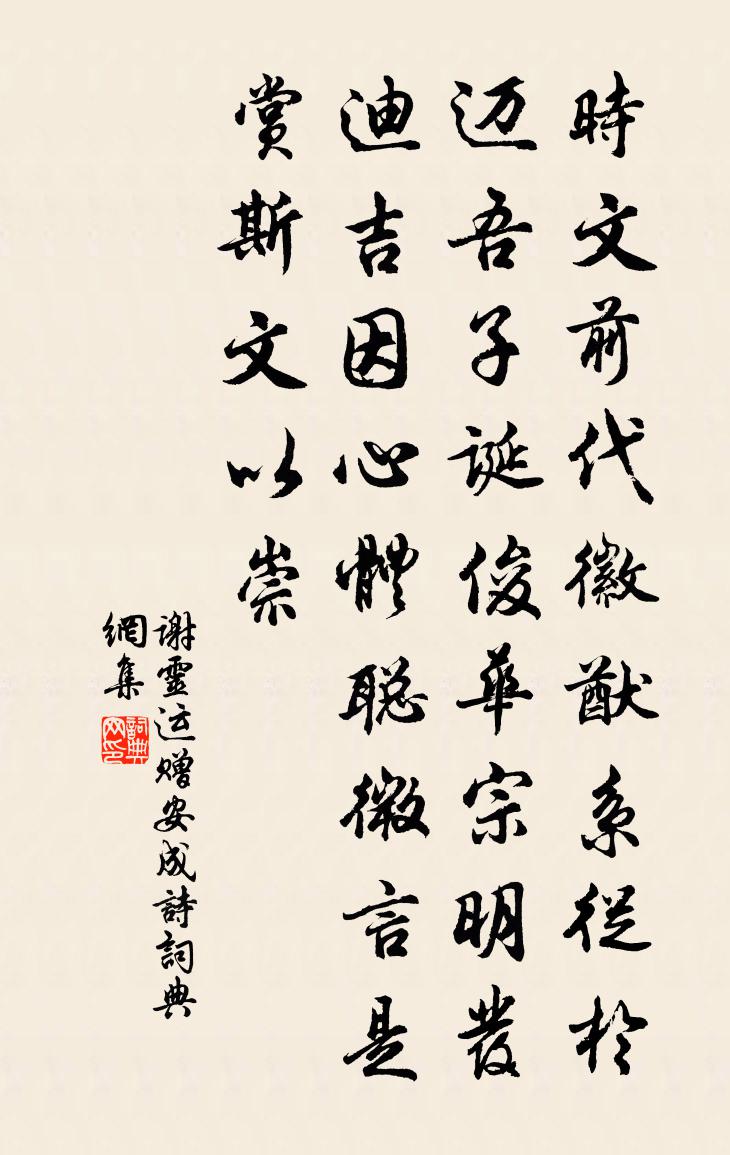 時文前代徽猷系從於
迈吾子誕俊華宗明發
迪吉因心體聪微言是
賞斯文以崇
谢靈运赠安成詩詞典
網集
詞典
网印